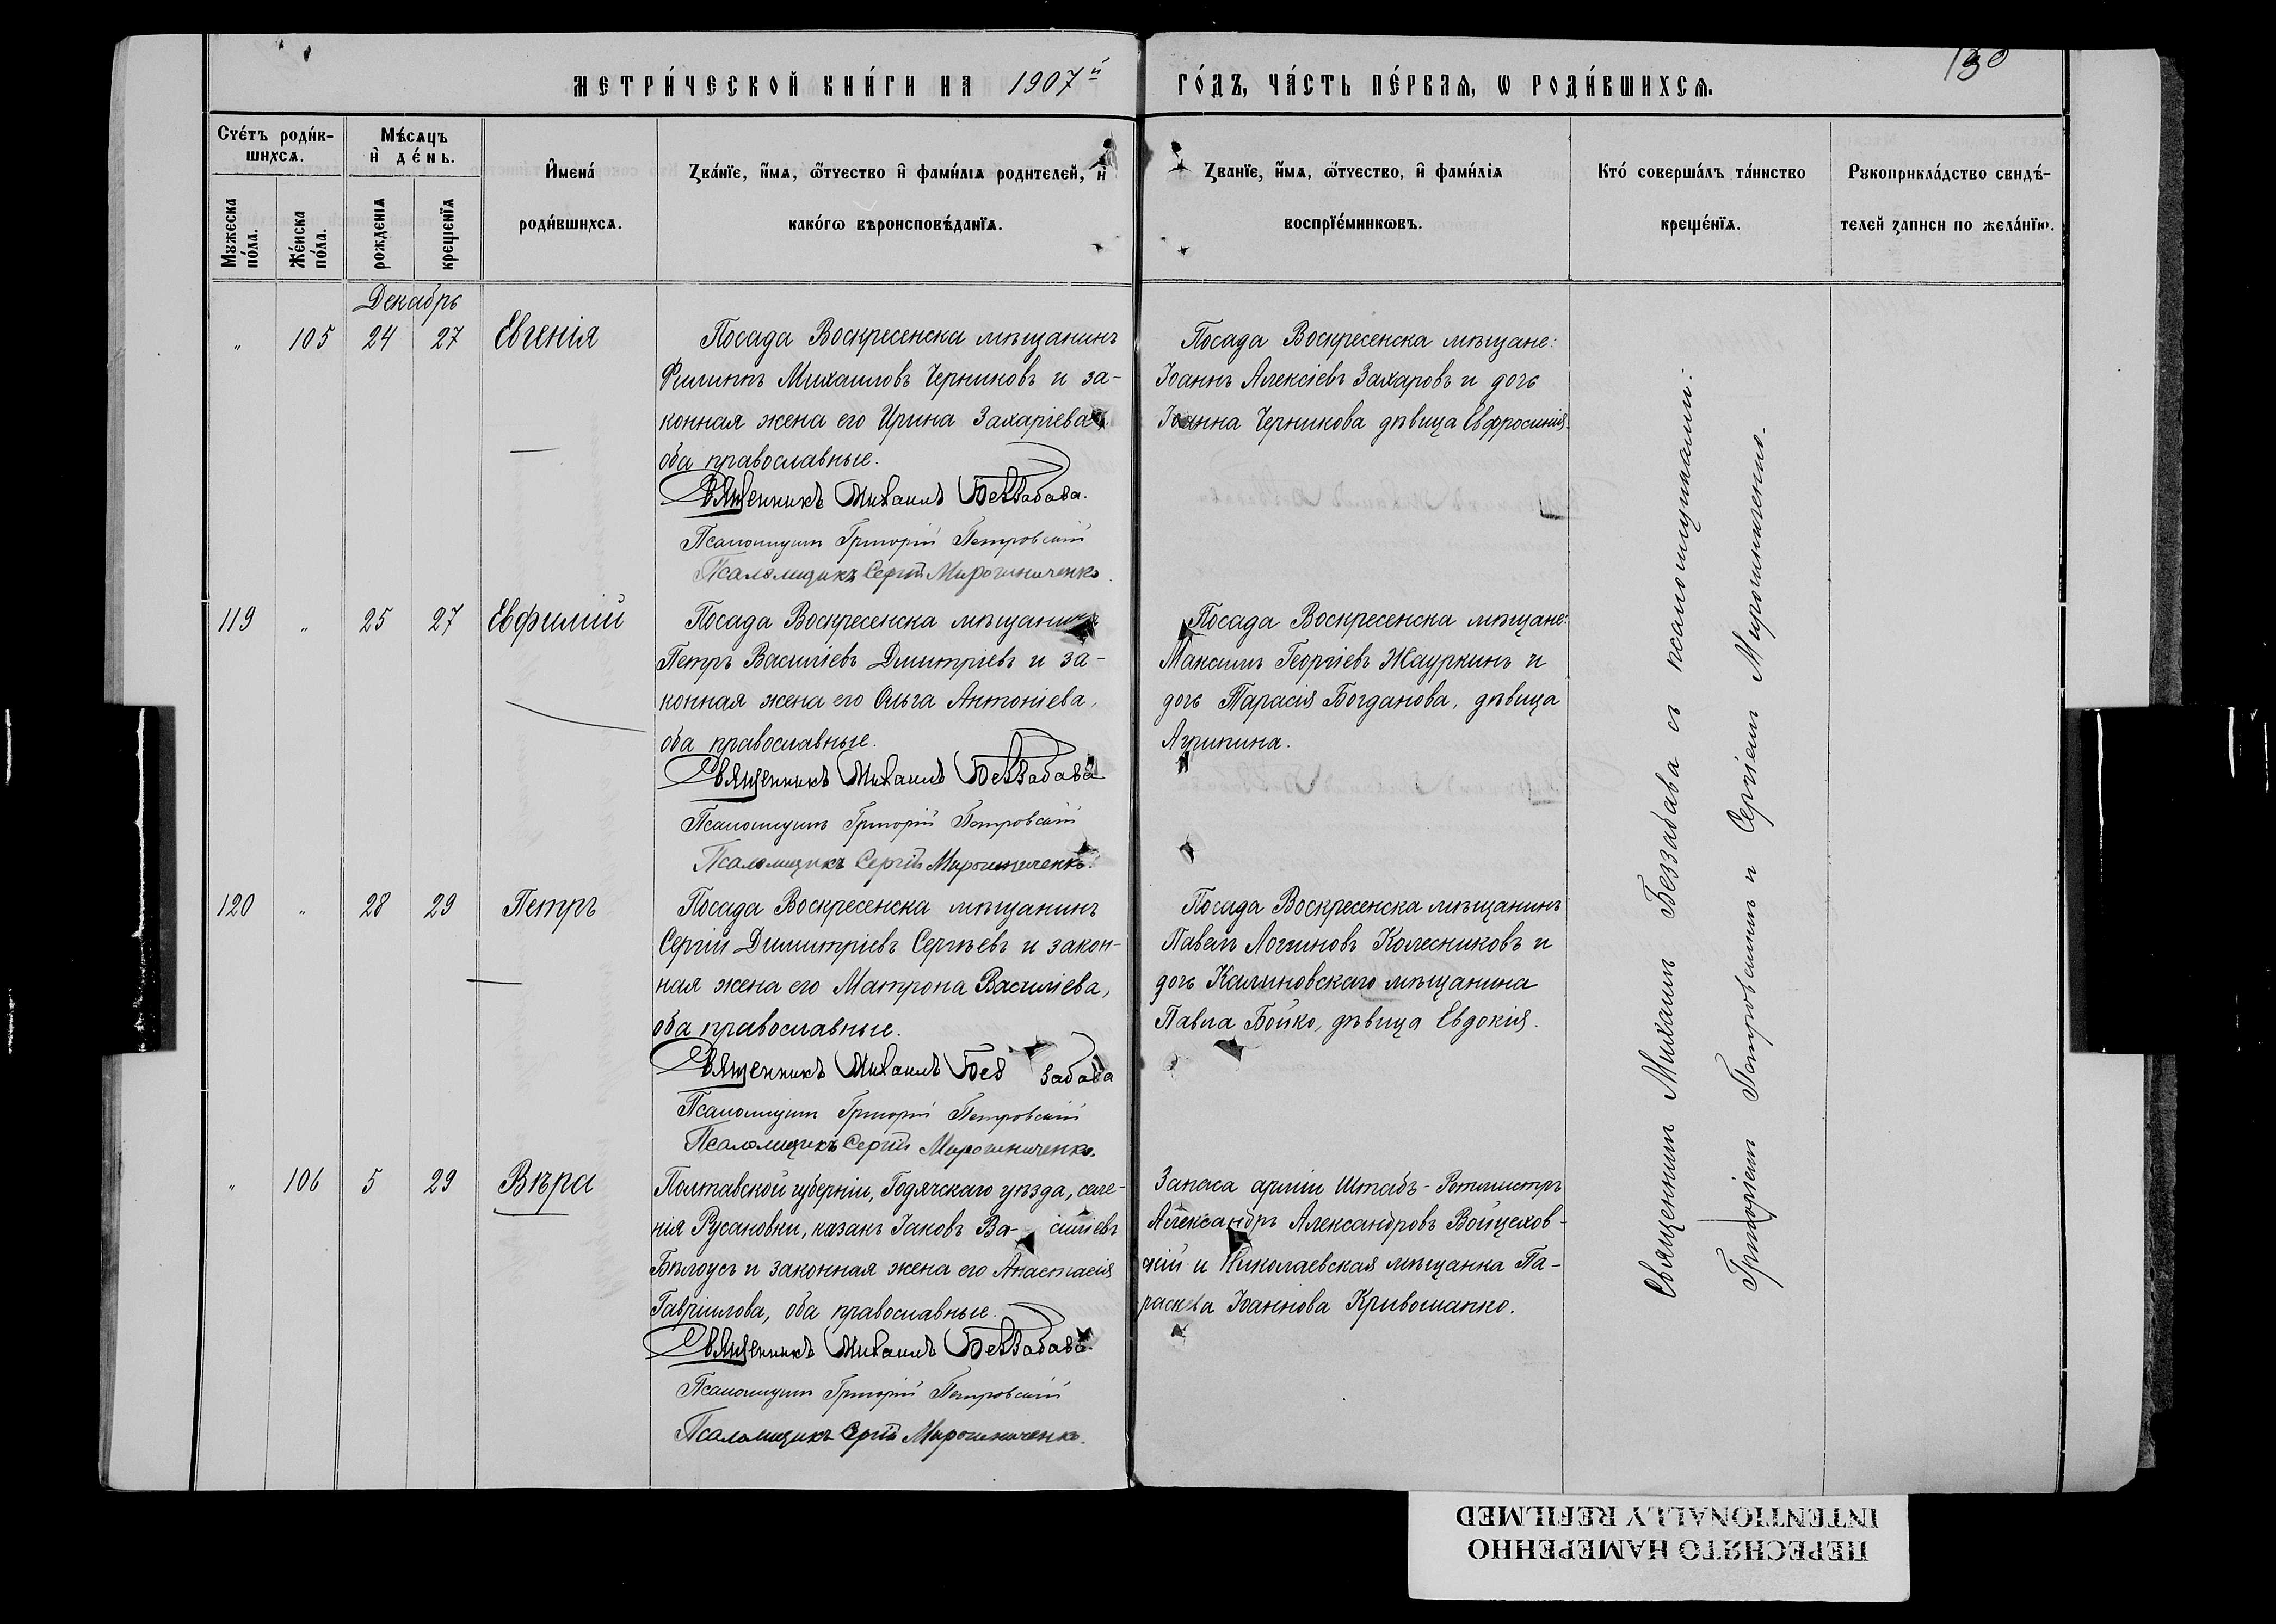 МЕТРИ́ЧЕСКОЙ КНИ́ГИ НА 1907й ГО́ДЪ, ЧА́СТЬ ПЕ́РВАѦ, Ѡ РОДИ́ВШИХСѦ.
130
Сче́тъ роди́в-
шихсѧ.
Мꙋжеска
по́ла.
Же́нска
по́ла.
Мѣ́сѧцъ
и҆ де́нь.
рожденїѧ
крещенїѧ
И҆мена́
роди́вшихсѧ.
Зва́нїе, и҆́мѧ, ѻ҆́тчество и҆ фами́лїѧ родителей, и҆
како́гѡ вѣроисповѣ́данїѧ.
Званїе, и҆́мѧ, ѻ҆́тчество, и҆ фами́лїѧ
воспрїе́мникѡвъ.
Кто́ соверша́лъ та́инство
креще́нїѧ.
Рꙋкоприкла́дство свидѣ́-
телей записи по жела́нїю.
Декабрь
" 105 24 27 Евгенія
Посада Воскресенска мѣщанинъ
Филиппъ Михаиловъ Черниковъ и за-
конная жена его Ирина Захаріева,
оба православные.
Священникъ Михаилъ Беззабава.
Псаломщикъ Григорій Петровскій
Псаломщикъ Сергій Мирошниченко.
Посада Воскресенска мѣщане:
Іоаннъ Алексіевъ Захаровъ и дочь
Іоанна Черникова дѣвица Евфросинія.
119 " 25 27 Евфимій
Посада Воскресенска мѣщанинъ
Петръ Василіевъ Димитріевъ и за-
конная жена его Ольга Антоніева,
оба православные.
Священникъ Михаилъ Беззабава
Псаломщикъ Григорій Петровскій
Псаломщикъ Сергій Мирошниченко.
Посада Воскресенска мѣщане:
Максимъ Георгіевъ Жауркинъ и
дочь Тарасія Богданова, дѣвица
Агрипина.
120 " 28 29 Петръ
Посада Воскресенска мѣщанинъ
Сергій Димитріевъ Сергѣевъ и закон-
ная жена его Матрона Василіева,
оба православные.
Священникъ Михаилъ Без забава
Псаломщикъ Григорій Петровскій
Псаломщикъ Сергій Мирошниченко.
Посада Воскресенска мѣщанинъ
Павелъ Логгиновъ Колесниковъ и
дочь Калиновскаго мѣщанина
Павла Бойко, дѣвица Евдокія.
" 106 5 29 Вѣра
Полтавской губерніи, Гадячскаго уѣзда, селе-
нія Русановки, казакъ Іаковъ Ва- силіевъ
Бѣлоусъ и законная жена его Анастасія
Гавріилова, оба православные.
Священникъ Михаилъ Беззабава.
Псаломщикъ Григорій Петровскій
Псаломщикъ Сергій Мирошниченко.
Запаса арміи Штабъ-Ротмистръ
Александръ Александровъ Войцехов-
скій и Николаевская мѣщанка Па-
раскева Іоаннова Кривошапко.
Священникъ Михаилъ Беззабава съ псаломщиками:
Григоріемъ Петровскимъ и Сергіемъ Мирошниченко.
ПЕРЕСНЯТО НАМЕРЕННО
INTENTIONALLY REFILMED